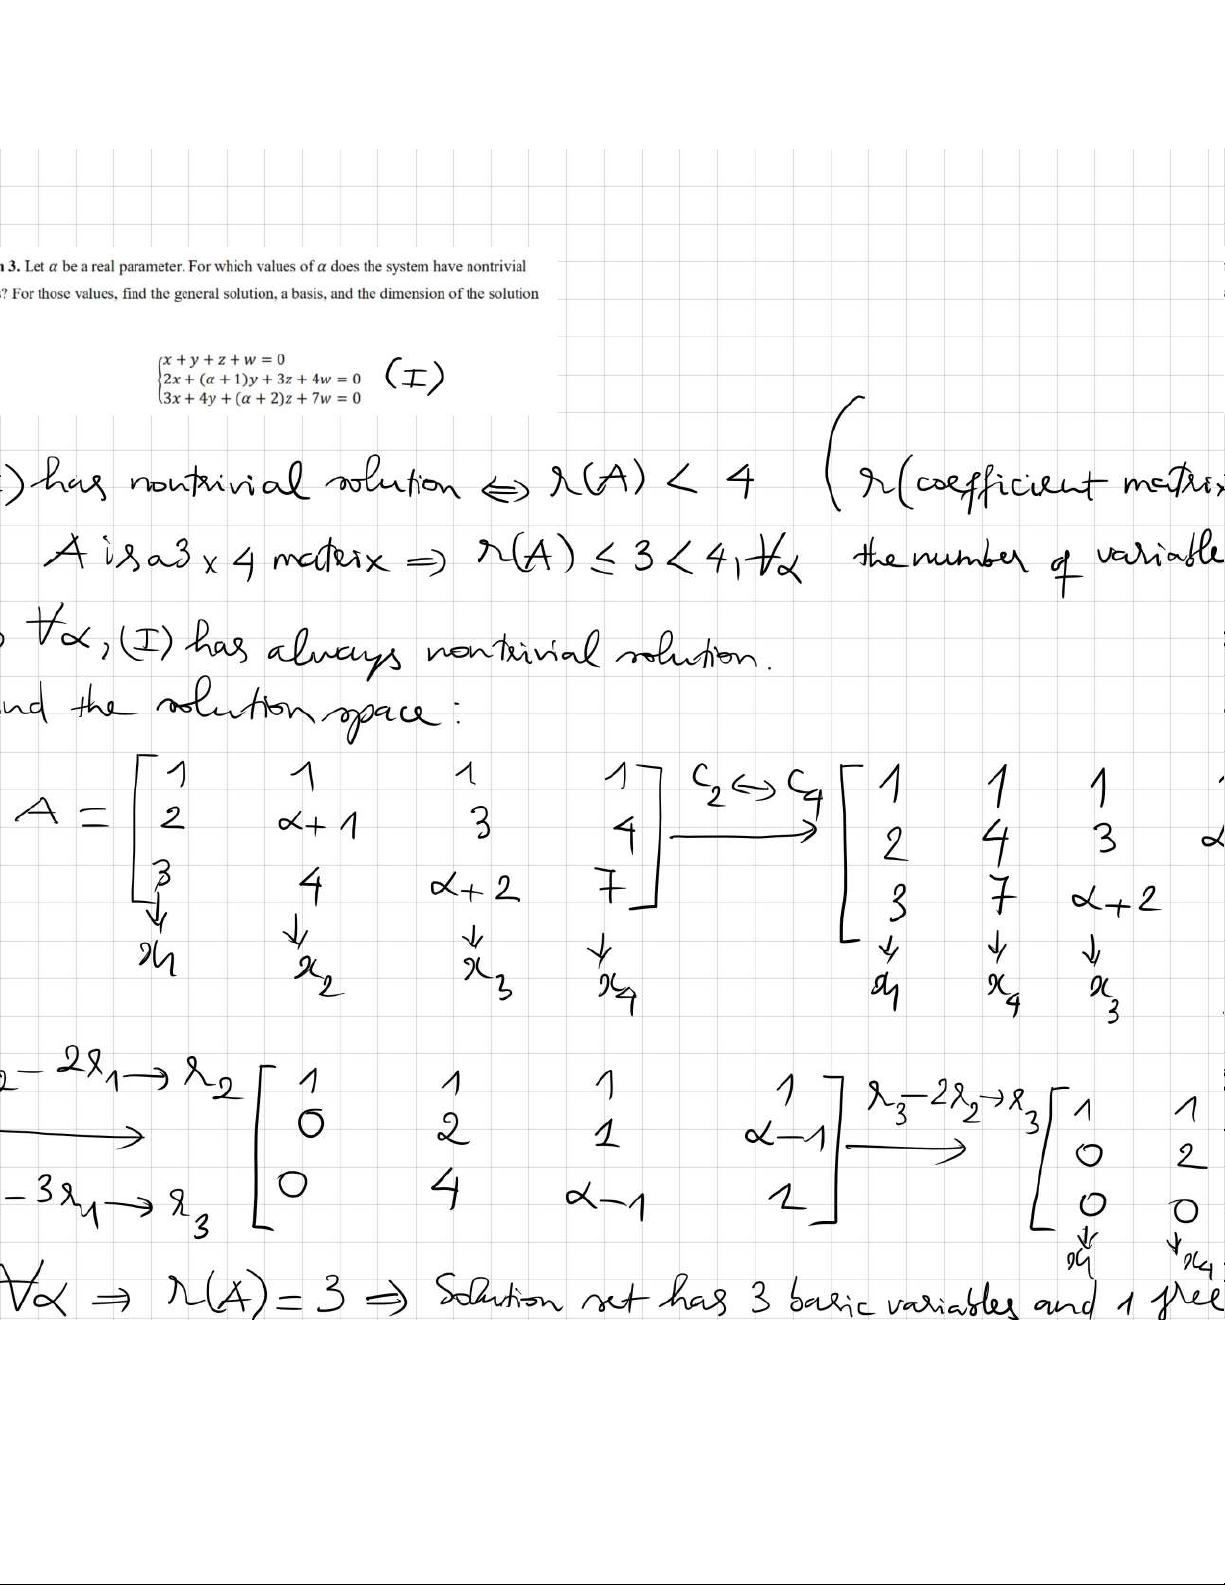 3. Let α be a real parameter. For which values of α does the system have nontrivial
? For those values, find the general solution, a basis, and the dimension of the solution
x + y + z + w = 0
2x + (α + 1)y + 3z + 4w = 0 (I)
3x + 4y + (α + 2)z + 7w = 0
) has nontrivial solution ⇔ r(A) < 4 ( r(coefficient matrix
A is a 3 x 4 matrix ⇒ r(A) ≤ 3 < 4, ∀α the number of variable
∀α, (I) has always nontrivial solution.
nd the solution space:
A = [ 1 1 1 1 ] C2 ↔ C4 [ 1 1 1 1
2 α+1 3 4 → 2 4 3 α
3 4 α+2 7 3 7 α+2
↓ ↓ ↓ ↓ ↓ ↓ ↓
x1 x2 x3 x4 x1 x4 x3
2 - 2r1 → r2 [ 1 1 1 1 ] r3 - 2r2 → r3 [ 1 1
→ 0 2 1 α-1 → 0 2
- 3r1 → r3 0 4 α-1 1 0 0
↓ ↓
x1 x4
∀α ⇒ r(A) = 3 ⇒ Solution set has 3 basic variables and 1 free